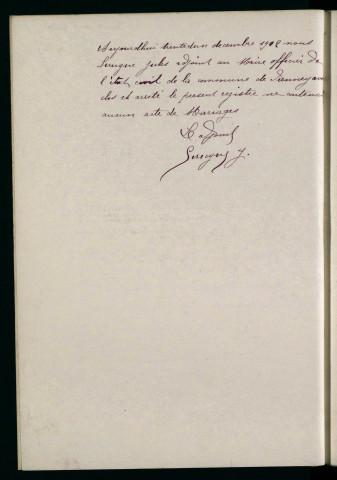 Aujourdhui trente un decembre 1912 nous
Jules adjoint au Maire officier de
l'état civil de la commune de
clos et arreté le present registre ne contenant
aucun acte de Mariages
L'adjoint
J.